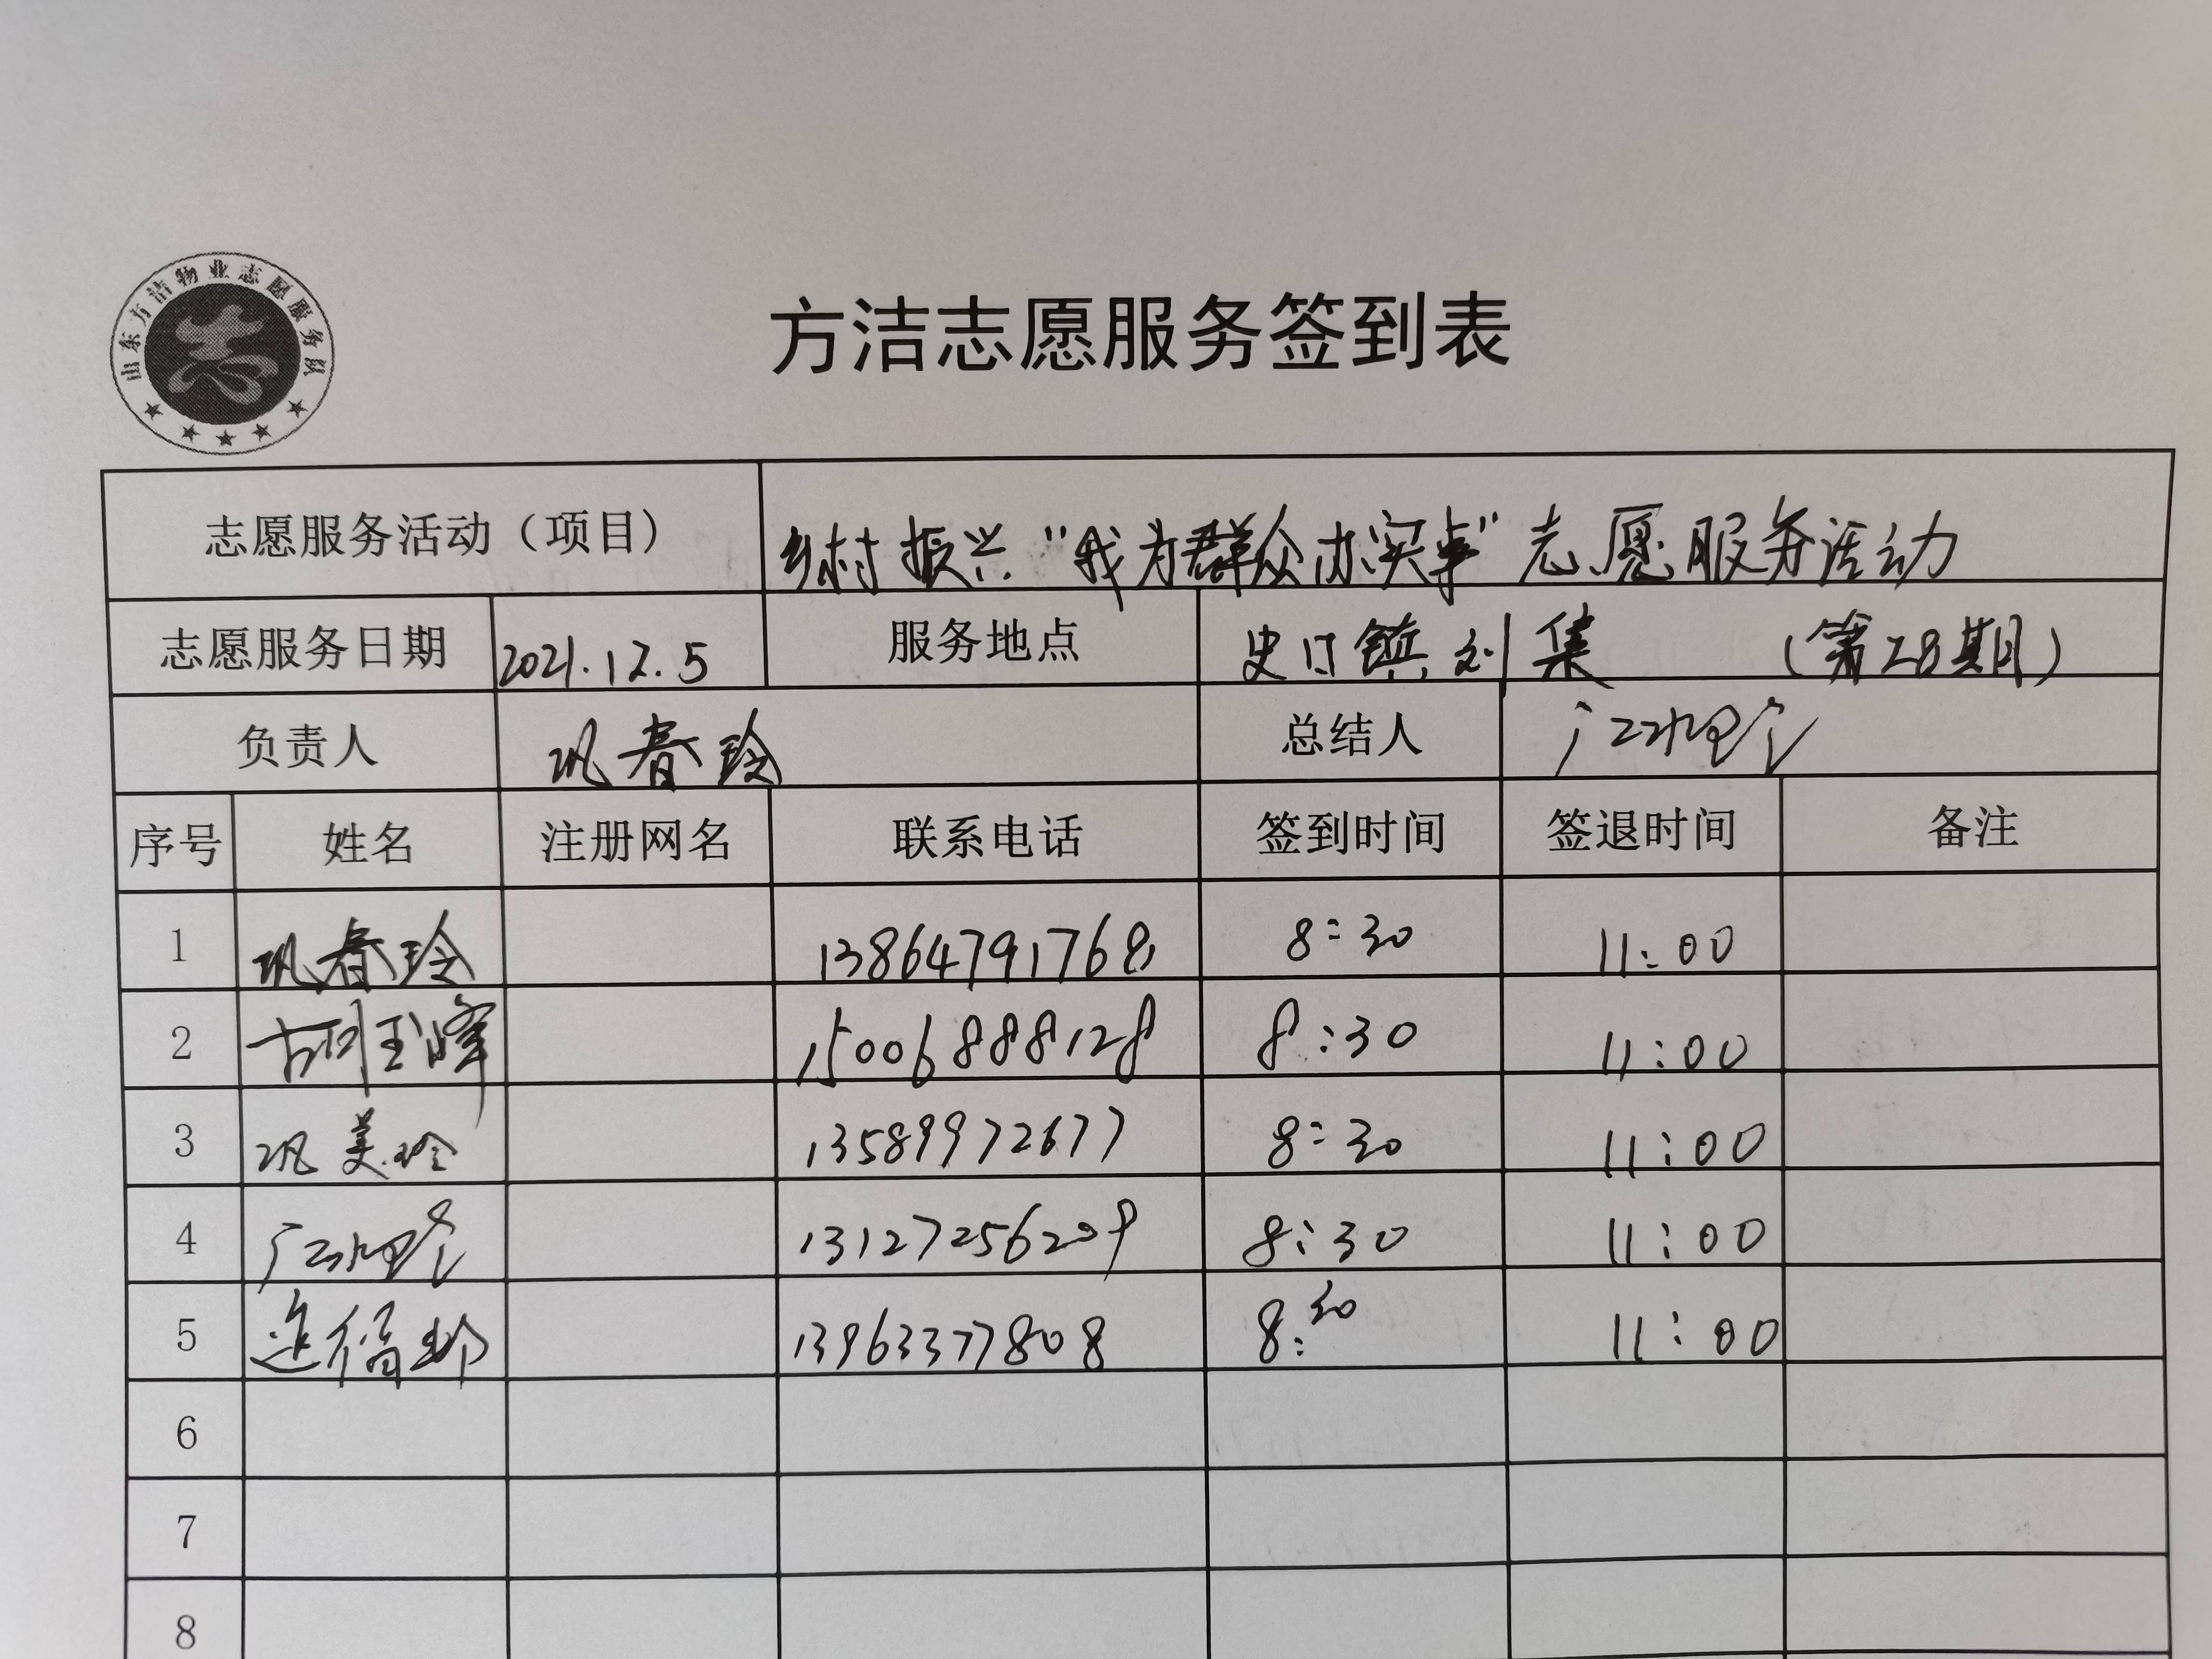 山东方洁物业志愿服务队
方洁志愿服务签到表
志愿服务活动（项目） 乡村振兴"我为群众办实事"志愿服务活动
志愿服务日期 2021.12.5 服务地点 史口镇刘集 （第28期）
负责人 巩春玲 总结人
序号 姓名 注册网名 联系电话 签到时间 签退时间 备注
1 巩春玲 13864791768 8:30 11:00
2 15006888128 8:30 11:00
3 巩美玲 13589972677 8:30 11:00
4 13127256209 8:30 11:00
5 13963377808 8:30 11:00
6
7
8